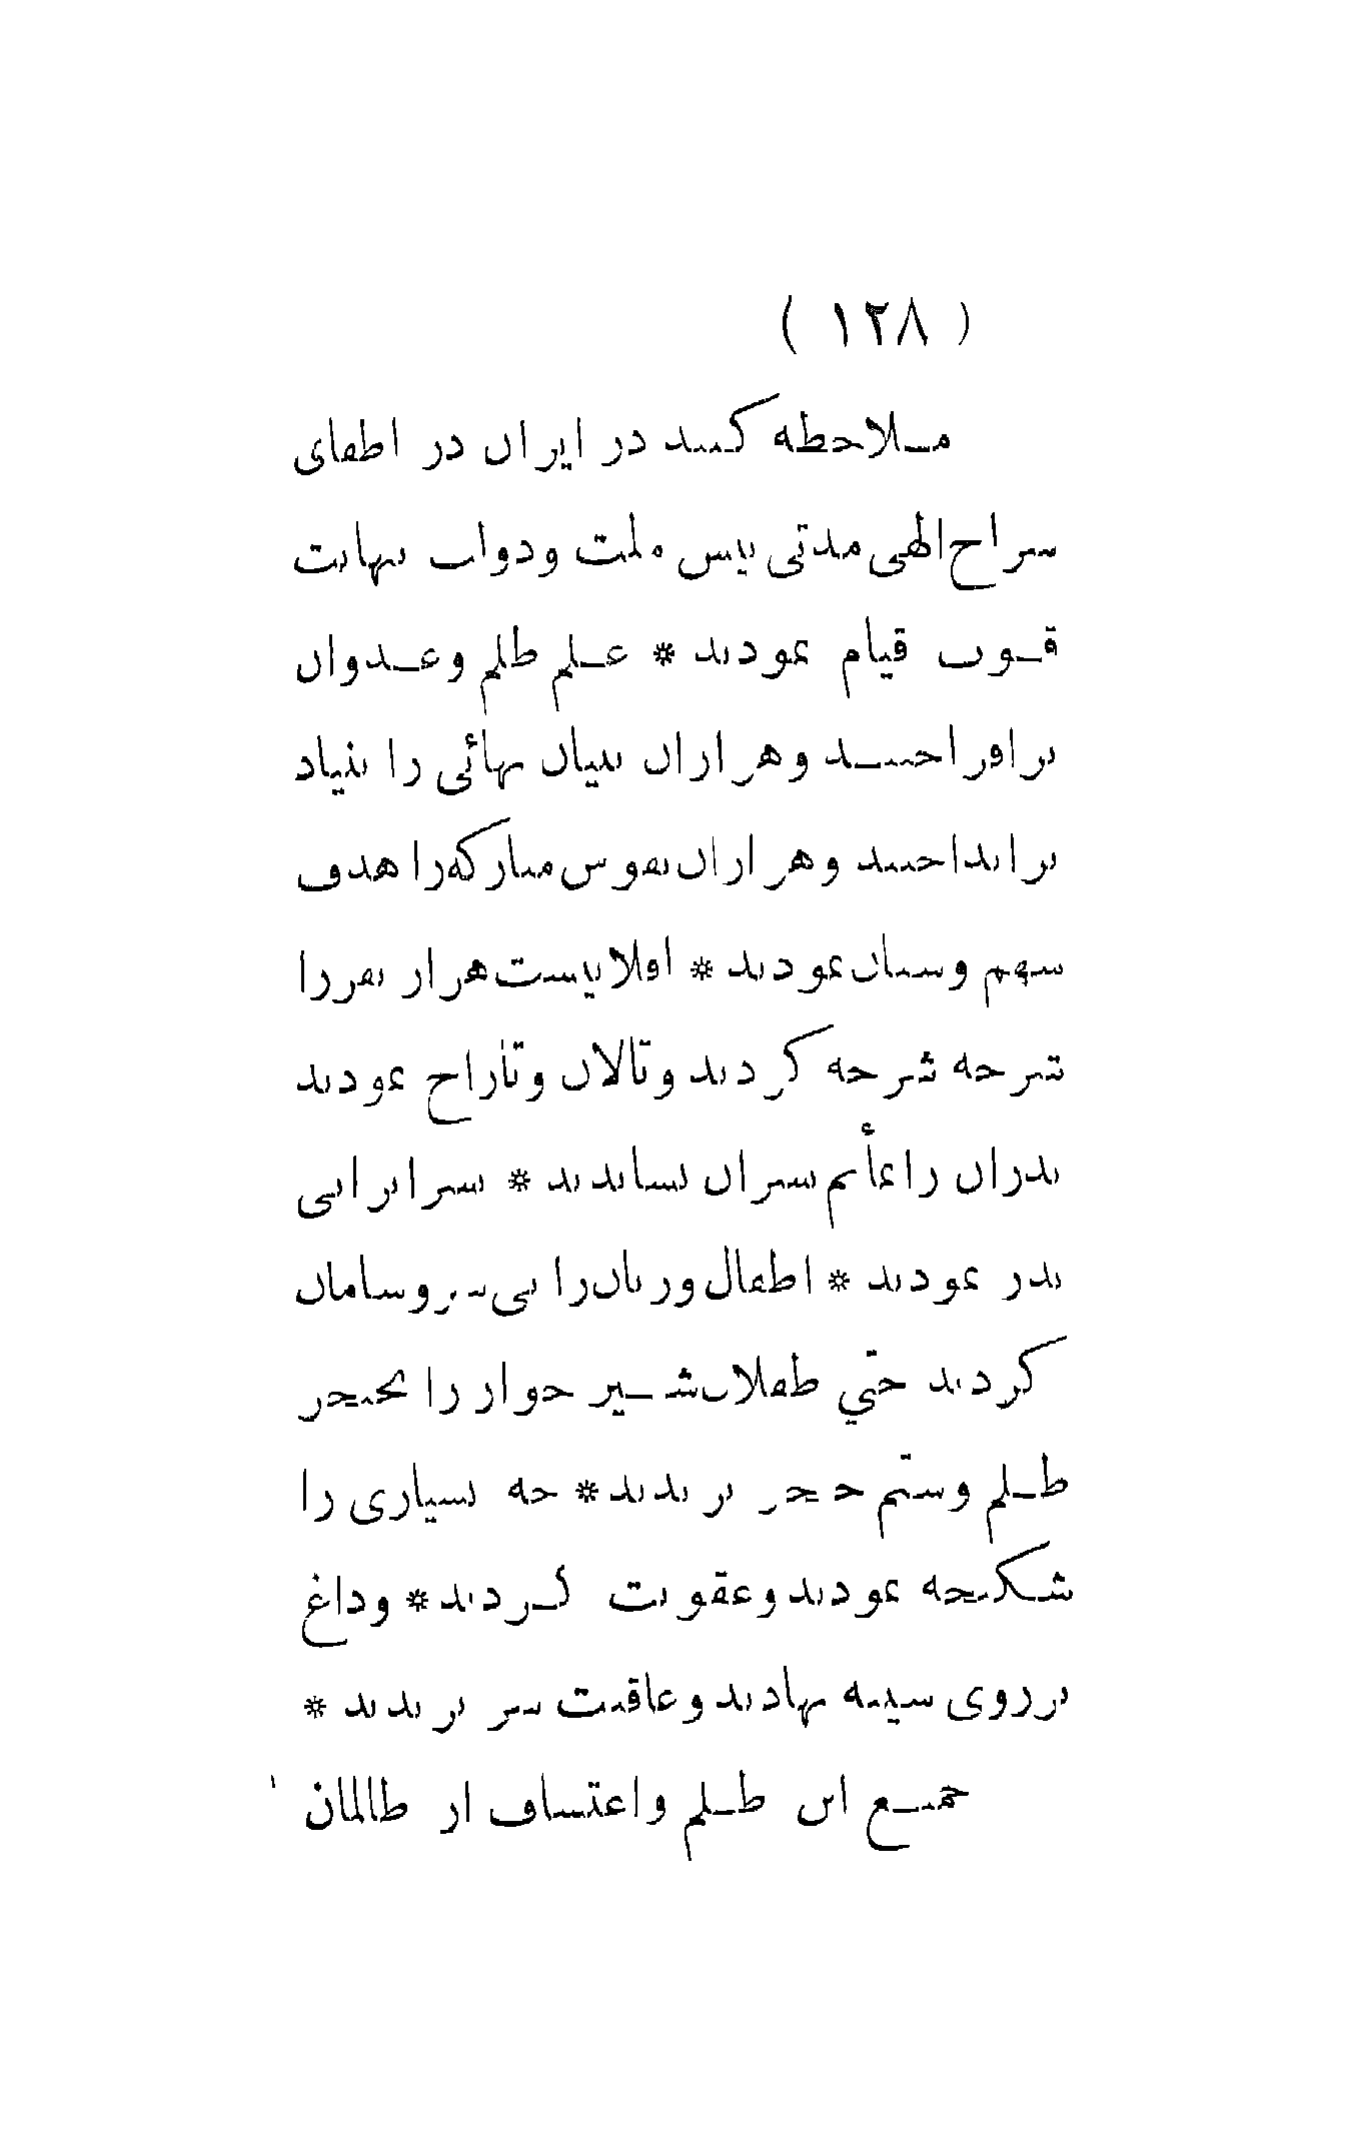 ( ١٢٨ )
ملاحظه کنید در ایران در اطفای
سراج الهی مدتی پیش ملت ودولت بنهایت
قوت قیام نمودند * علم ظلم وعدوان
برافراختند وهزاران بنیان بهائی را بنیاد
برانداختند وهزاران نفوس مبارکه را هدف
سهم وسنان نمودند * اقلا بیست هزار نفر را
شرحه شرحه کردند وتالان وتاراج نمودند
پدران را بمأتم پسران نشاندند * پسرانرا بی
پدر نمودند * اطفال وزنان را بی سر وسامان
کردند حتي طفلان شیر خوار را بخنجر
ظلم وستم حنجر بریدند * چه بسیاری را
شکنجه نمودند وعقوبت کردند * وداغ
بر روی سینه نهادند وعاقبت سر بریدند *
جمیع این ظلم واعتساف از ظالمان